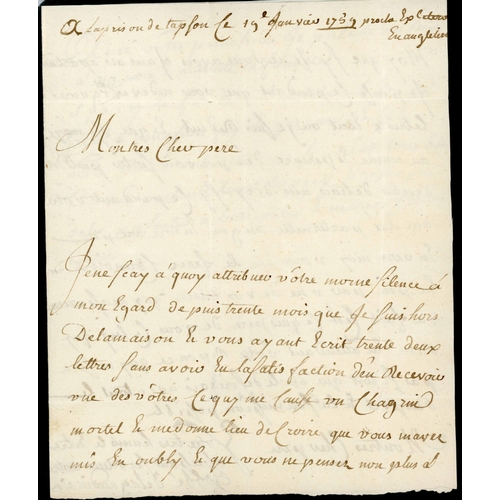 A La prison de tapson Ce 19e Janvier 1759 proche
Mon tres Cher pere
Je ne scay á quoy attribuer vôtre morne silence á
mon Egard depuis trente mois que Je suis hors
De la maison Et vous ayant Ecrit trente deux
lettres sans avoir Eu la satisfaction d'en Recevoir
vne des vôtres Ce qui me Cause vn Chagrin
mortel Et me donne lieu de Croire que vous m'avez
mis En oubly Et que vous ne pensez non plus á